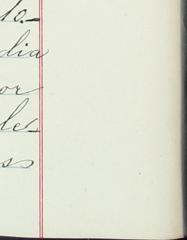 to.
dia
or
le
ss